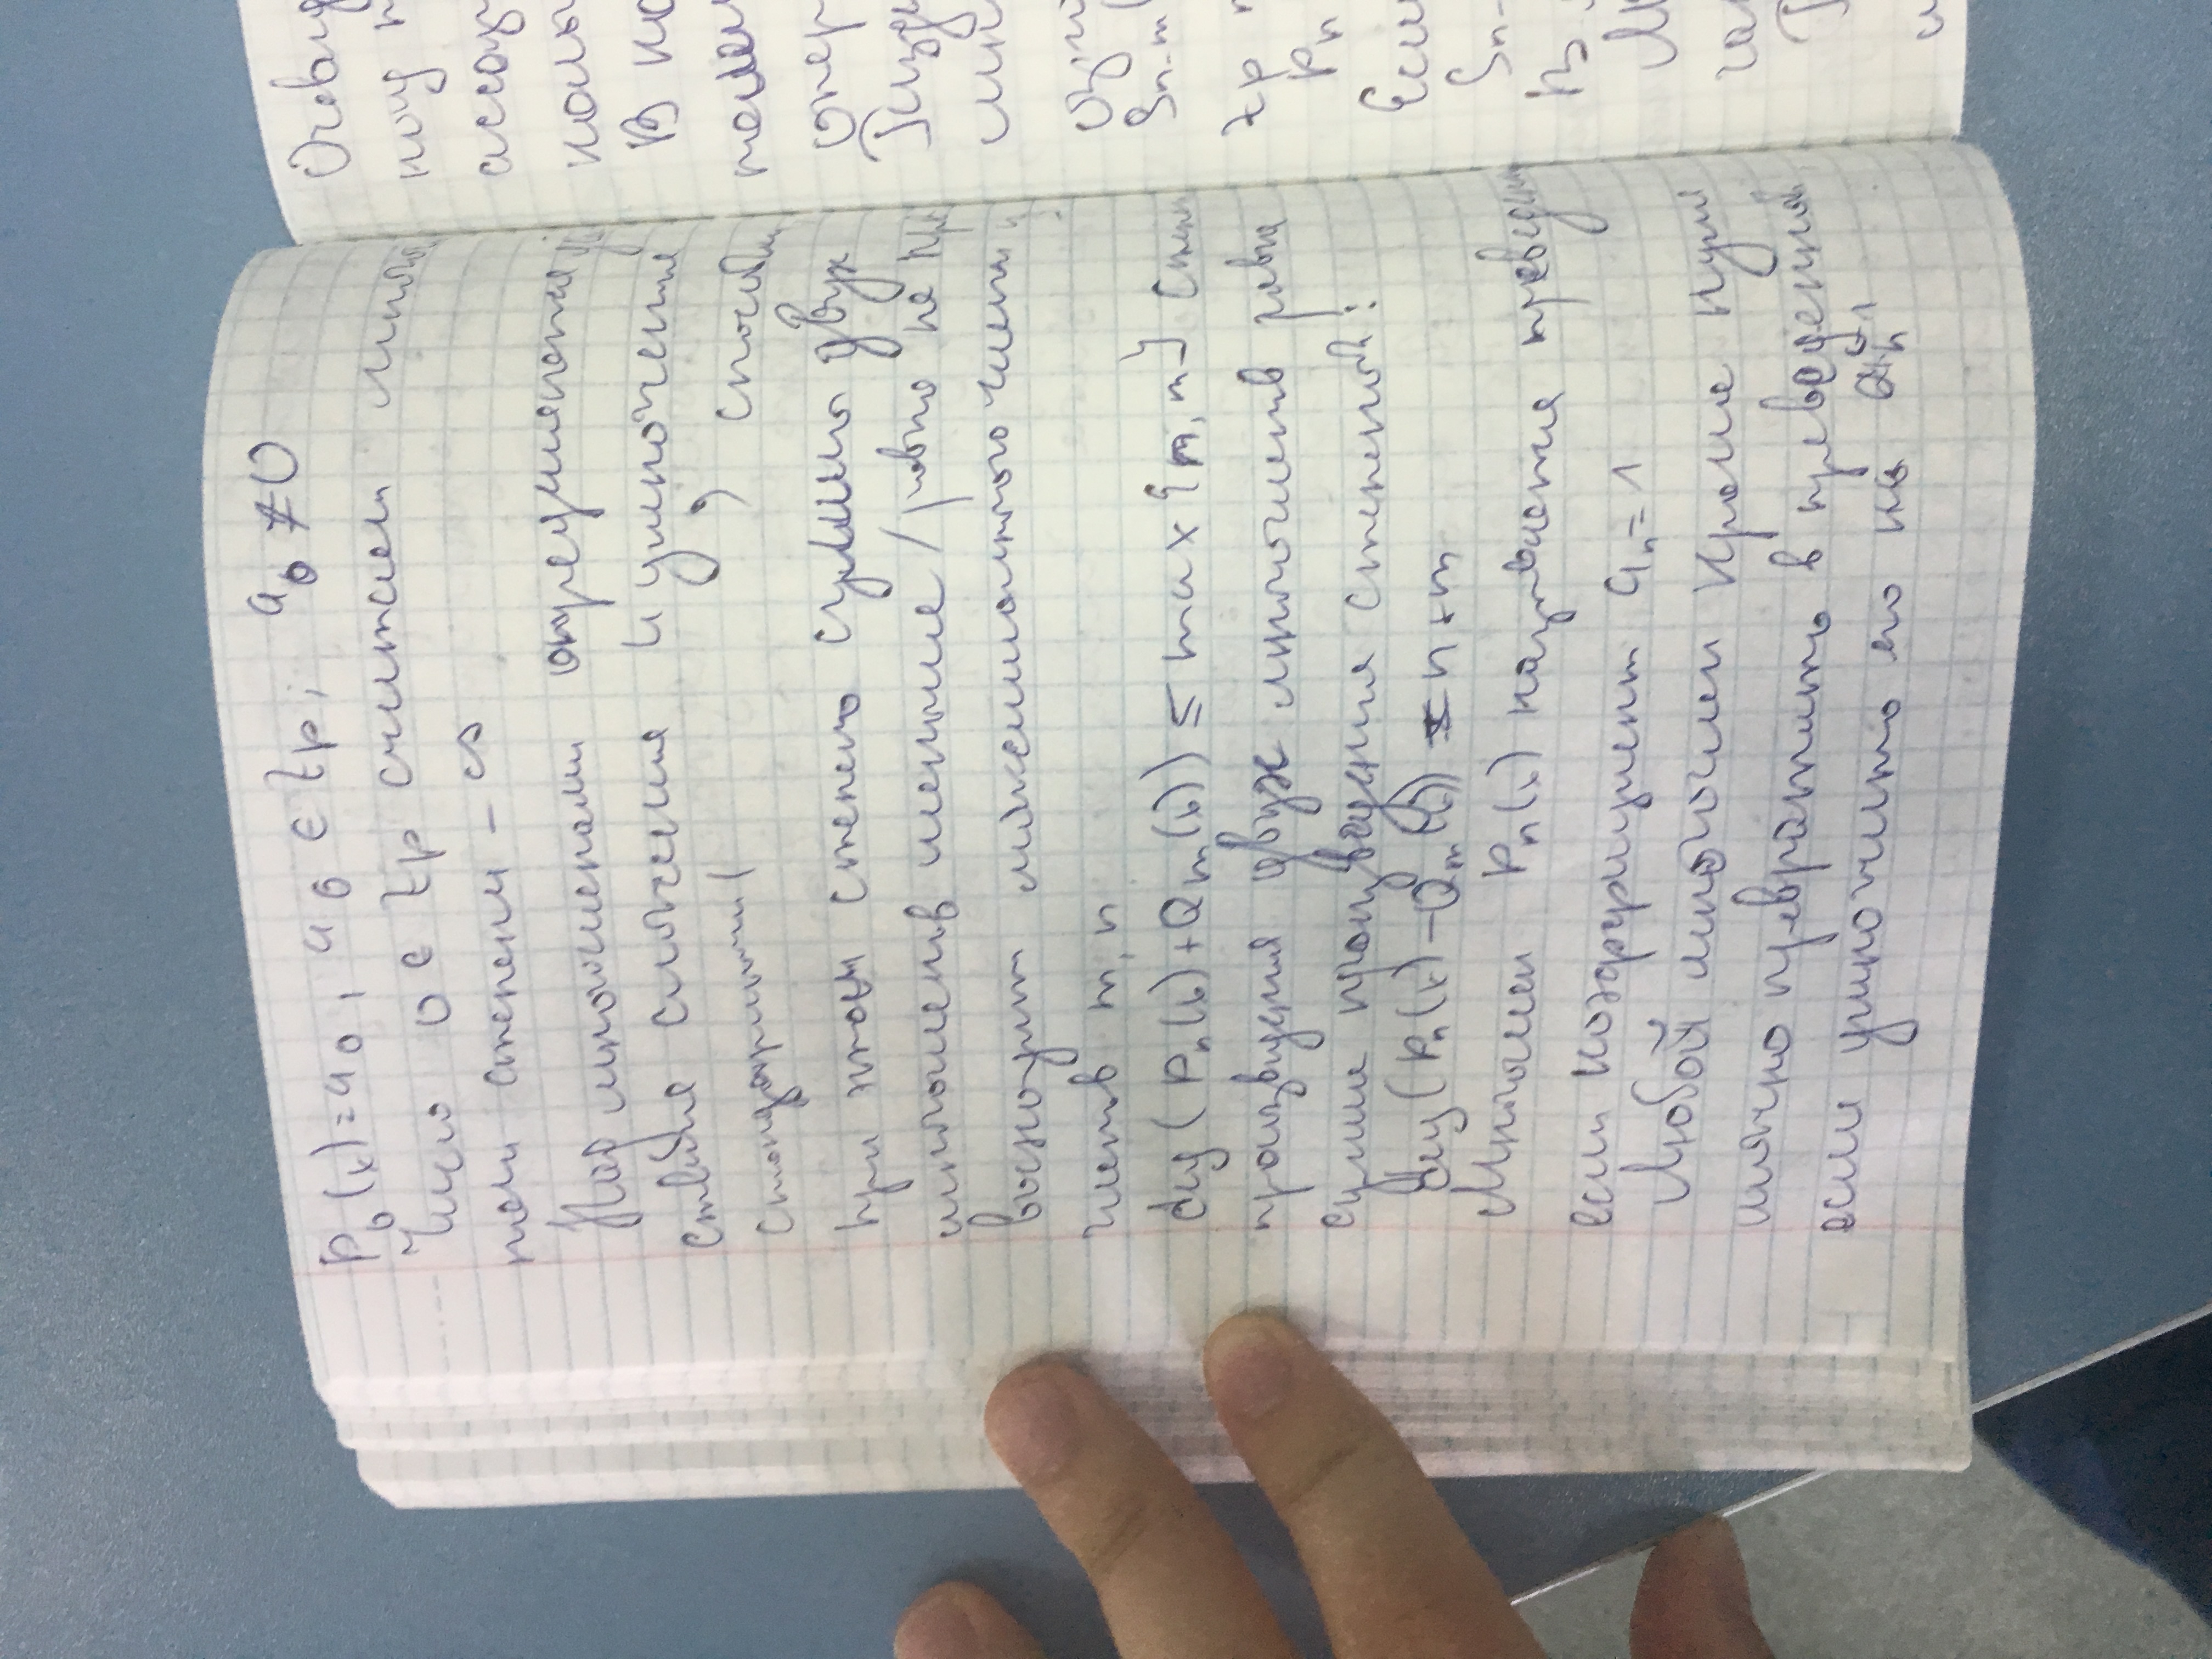 P₀(x)=a₀, a₀ ∈ Zp; a₀ ≠ 0
Число 0 ∈ Zp считаем много
чтем степени -∞
Над многочленами определяются
ствия сложения и умножения
, способом
При этом степень суммы двух
многочленов меньше/равно не пре
восходит максимального
числов m, n
deg(Pₙ(x)+Qₘ(x)) ≤ max{n, m} Степ
произведения двух многочленов равна
сумме произведения степеней:
deg(Pₙ(x)-Qₘ(x)) = n+m
Многочлен Pₙ(x) называется приведен
если коэффициент aₙ=1
Любой многочлен кроме нуля
можно превратить в приведенной
если умножить его на aₙ⁻¹
Очевид
ассоц
коль
В ко
опер
мн
Sn-m
Zp
Pn
Если
Sn-
В